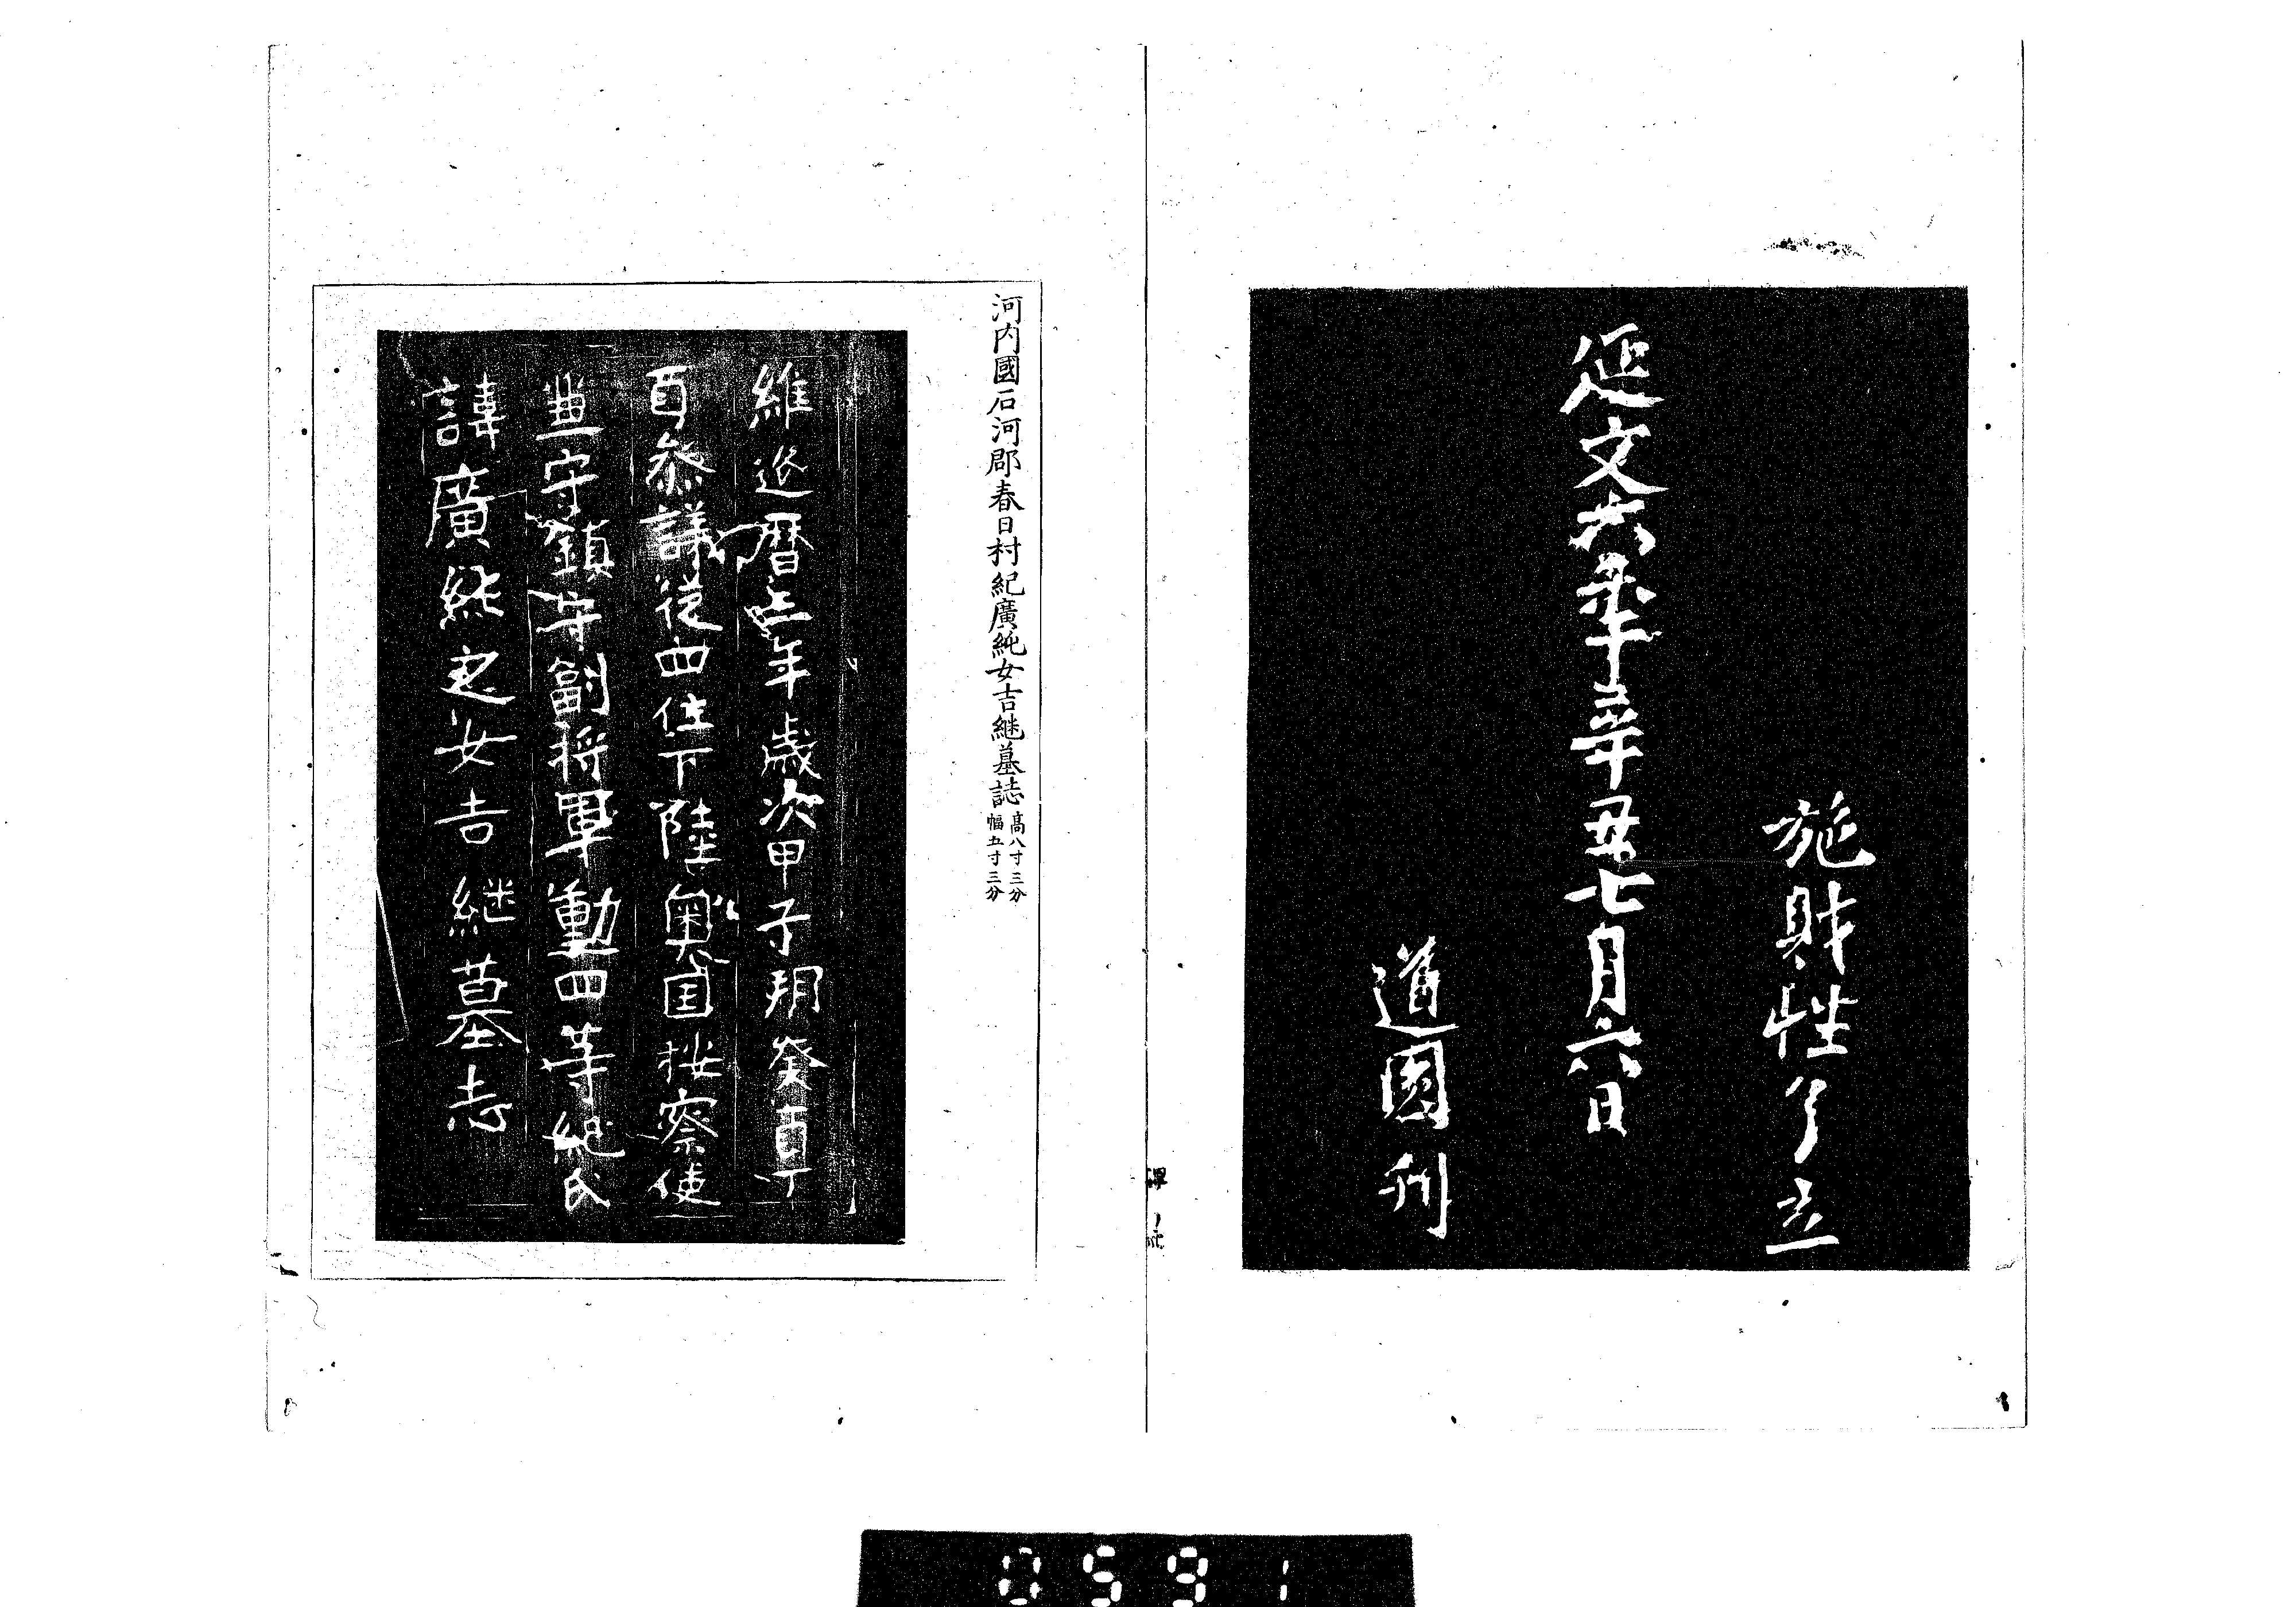 施財性了立
延文六年辛丑七月六日
道圓刊
河内國石河郡春日村紀廣純女吉継墓誌 高八寸三分
幅五寸三分
維延暦三年歳次甲子朔癸酉丁
酉参議従四位下陸奥国按察使
兼守鎮守副将軍勳四等紀氏
諱廣純之女吉継墓志
0591